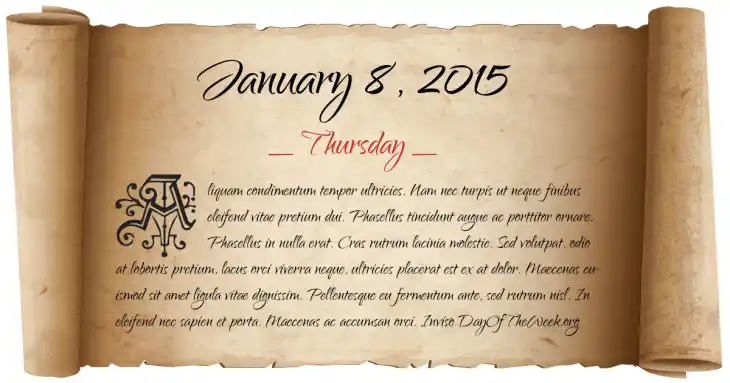 January 8, 2015
_ Thursday _
Aliquam condimentum tempor ultricies. Nam nec turpis ut neque finibus
eleifend vitae pretium dui. Phasellus tincidunt augue ac porttitor ornare.
Phasellus in nulla erat. Cras rutrum lacinia molestie. Sed volutpat, odio
at lobortis pretium, lacus orci viverra neque, ultricies placerat est ex at dolor. Maecenas eu-
ismod sit amet ligula vitae dignissim. Pellentesque eu fermentum ante, sed rutrum nisl. In
eleifend nec sapien et porta. Maecenas ac accumsan orci. Inviso DayOfTheWeek.org